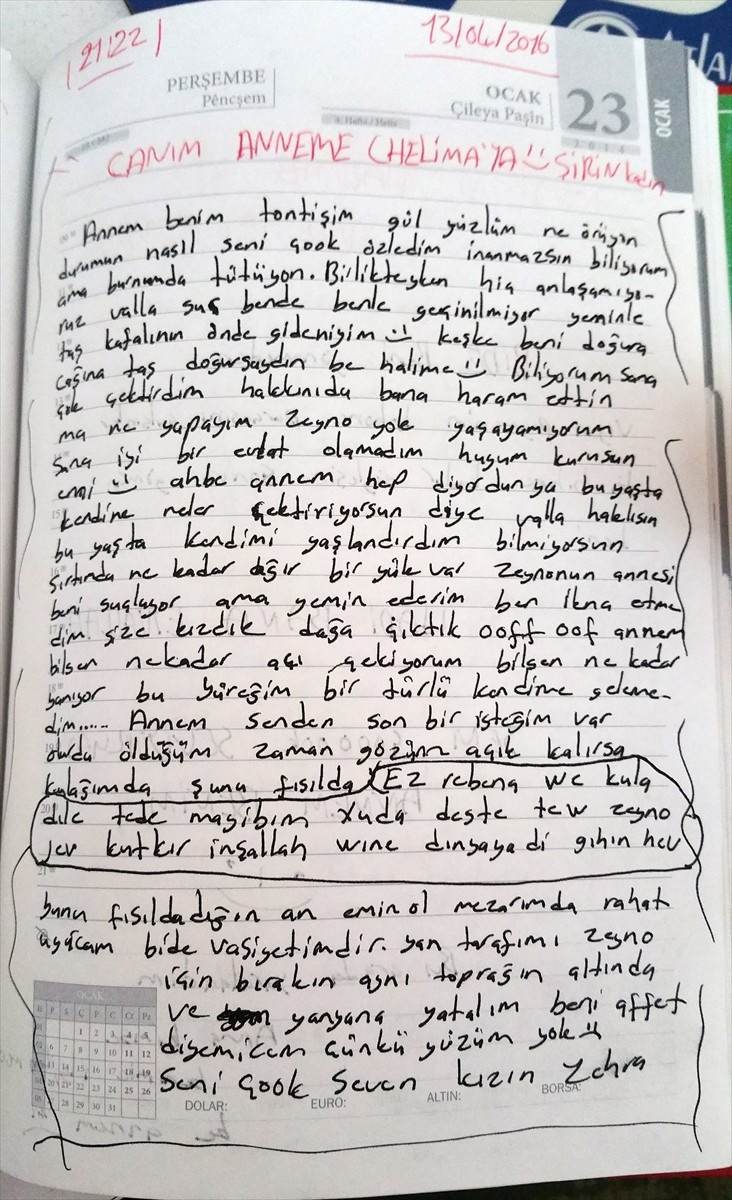 21:22
13/04/2016
PERŞEMBE
Pêncşem
OCAK
Çileya Paşîn
23
OCAK
CANIM ANNEME (HELİMA'YA Ü ŞİRİN kadın
Annem benim tontişim gül yüzlüm ne örüyon
durumun nasıl seni çook özledim inanmazsın biliyorum
ama burnumda tütüyon. Birlikteyken hiç anlaşamıyo-
ruz valla suç bende benle geçinilmiyor yeminle
taş kafalının önde gideniyim Ü keşke beni doğura
cağına taş doğursaydın be halime Ü Biliyorum sana
çok çektirdim hakkınıda bana haram ettin
ma ne yapayım Zeyno yok yaşayamıyorum
sana iyi bir evlat olamadım huyum kurusun
emi Ü ahbe annem hep diyordun ya bu yaşta
kendine neler çektiriyorsun diye valla haklısın
bu yaşta kendimi yaşlandırdım bilmiyorsun
sırtında ne kadar ağır bir yük var zeynonun annesi
beni suçluyor ama yemin ederim ben ikna etme
dim size kızdık dağa çıktık ooff oof annem
bilsen nekadar açı çekiyorum bilsen ne kadar
yanıyor bu yüreğim bir türlü kendime geleme-
dim..... Annem senden son bir isteğim var
olurdu öldüğüm zaman gözüm açık kalırsa
kulağımda şunu fısılda (Ez rebena we kula
dile tede magibim xuda deste tew zeyno
jev kutkır inşallah wine dınyaya di gihın hev
bunu fısıldadığın an emin ol mezarımda rahat
uyucam bide vasiyetimdir. yan tarafımı zeyno
için bırakın aynı toprağın altında
ve yanyana yatalım beni affet
diyemicem çünkü yüzüm yok
Seni çook seven kızın Zehra
OCAK
DOLAR: EURO: ALTIN: BORSA: